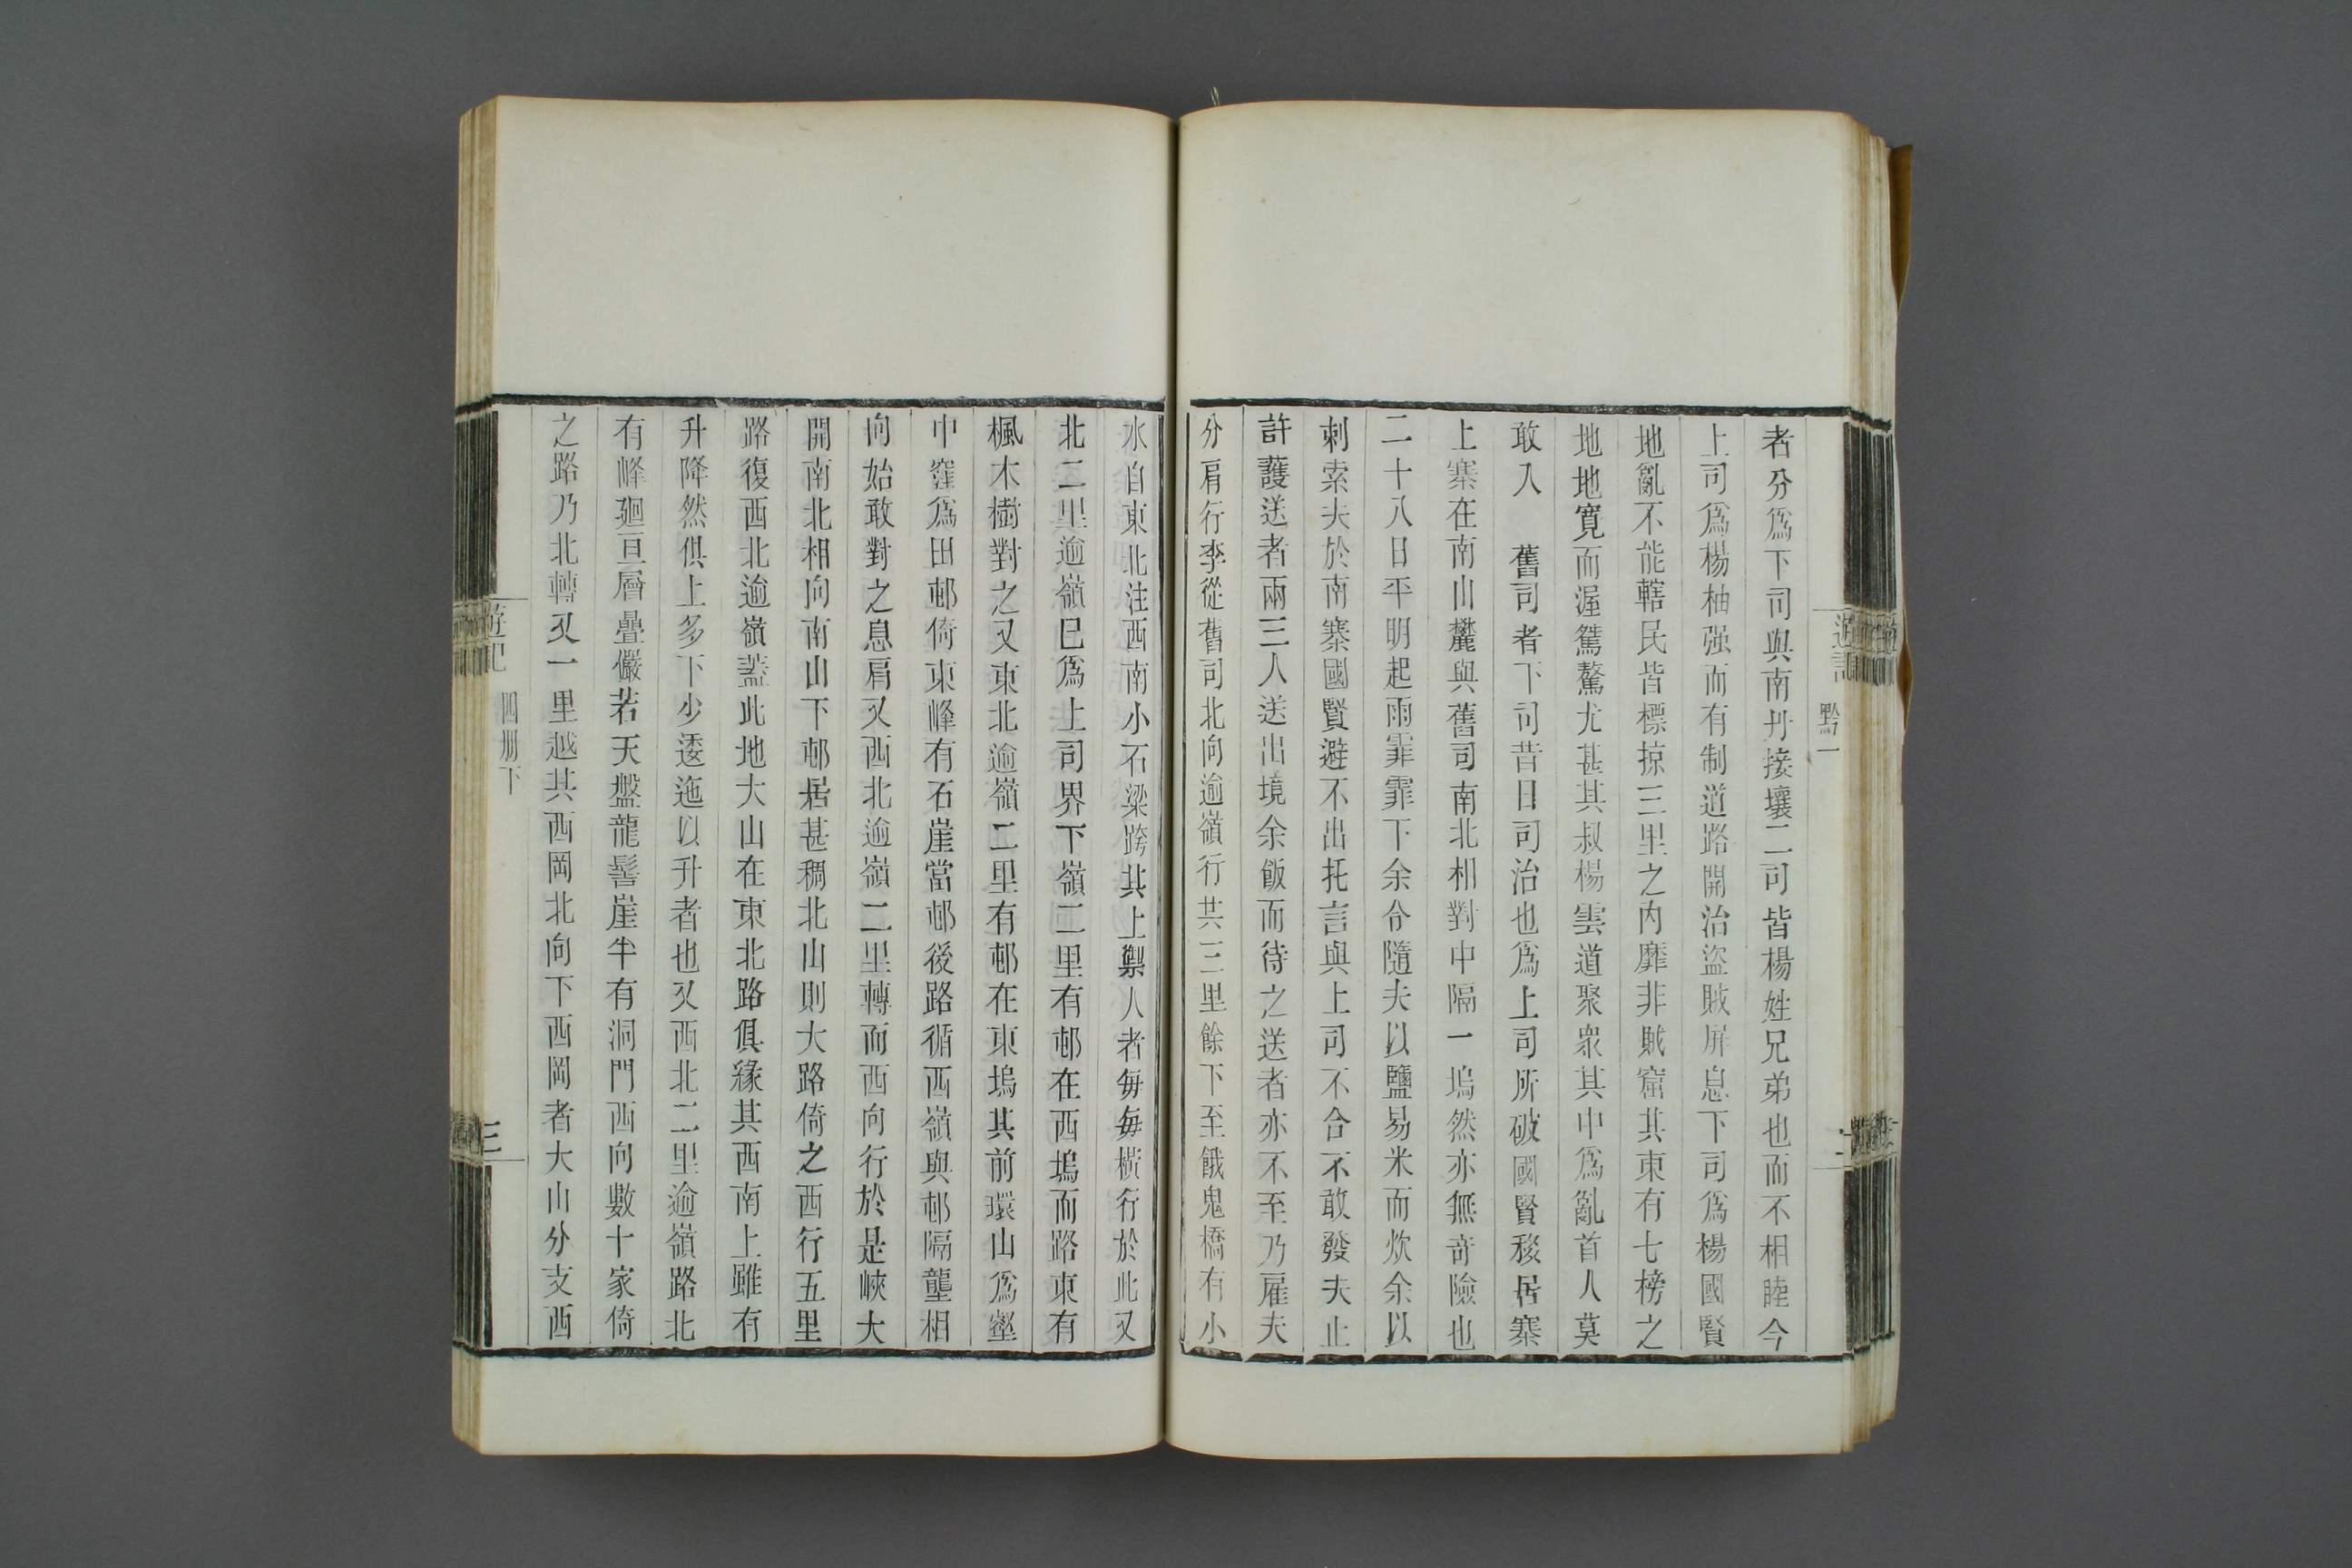 遊記
黔一
二
者分爲下司與南丹接壤二司皆楊姓兄弟也而不相睦今
上司爲楊柚强而有制道路開治盜賊屏息下司爲楊國賢
地亂不能轄民皆標掠三里之内靡非賊窟其東有七榜之
地地寛而渥鴐驁尤甚其叔楊雲道聚衆其中爲亂首人莫
敢入　舊司者下司昔日司治也爲上司所破國賢移居寨
上寨在南山麓與舊司南北相對中隔一塢然亦無奇險也
二十八日平明起雨霏霏下余令隨夫以鹽易米而炊余以
刺索夫於南寨國賢避不出托言與上司不合不敢發夫止
許護送者兩三人送出境余飯而待之送者亦不至乃雇夫
分肩行李從舊司北向逾嶺行共三里餘下至餓鬼橋有小
水自東北注西南小石梁跨其上禦人者每每橫行於此又
北二里逾嶺巳爲上司界下嶺二里有邨在西塢而路東有
楓木樹對之又東北逾嶺二里有邨在東塢其前環山爲壑
中窪爲田邨倚東峰有石崖當邨後路循西嶺與邨隔壟相
向始敢對之息肩又西北逾嶺二里轉而西向行於是峽大
開南北相向南山下邨居甚稠北山則大路倚之西行五里
路復西北逾嶺蓋此地大山在東北路俱緣其西南上雖有
升降然俱上多下少逶迤以升者也又西北二里逾嶺路北
有峰廻亘層疊儼若天盤龍髻崖半有洞門西向數十家倚
之路乃北轉又一里越其西岡北向下西岡者大山分支西
遊記
四册下
三